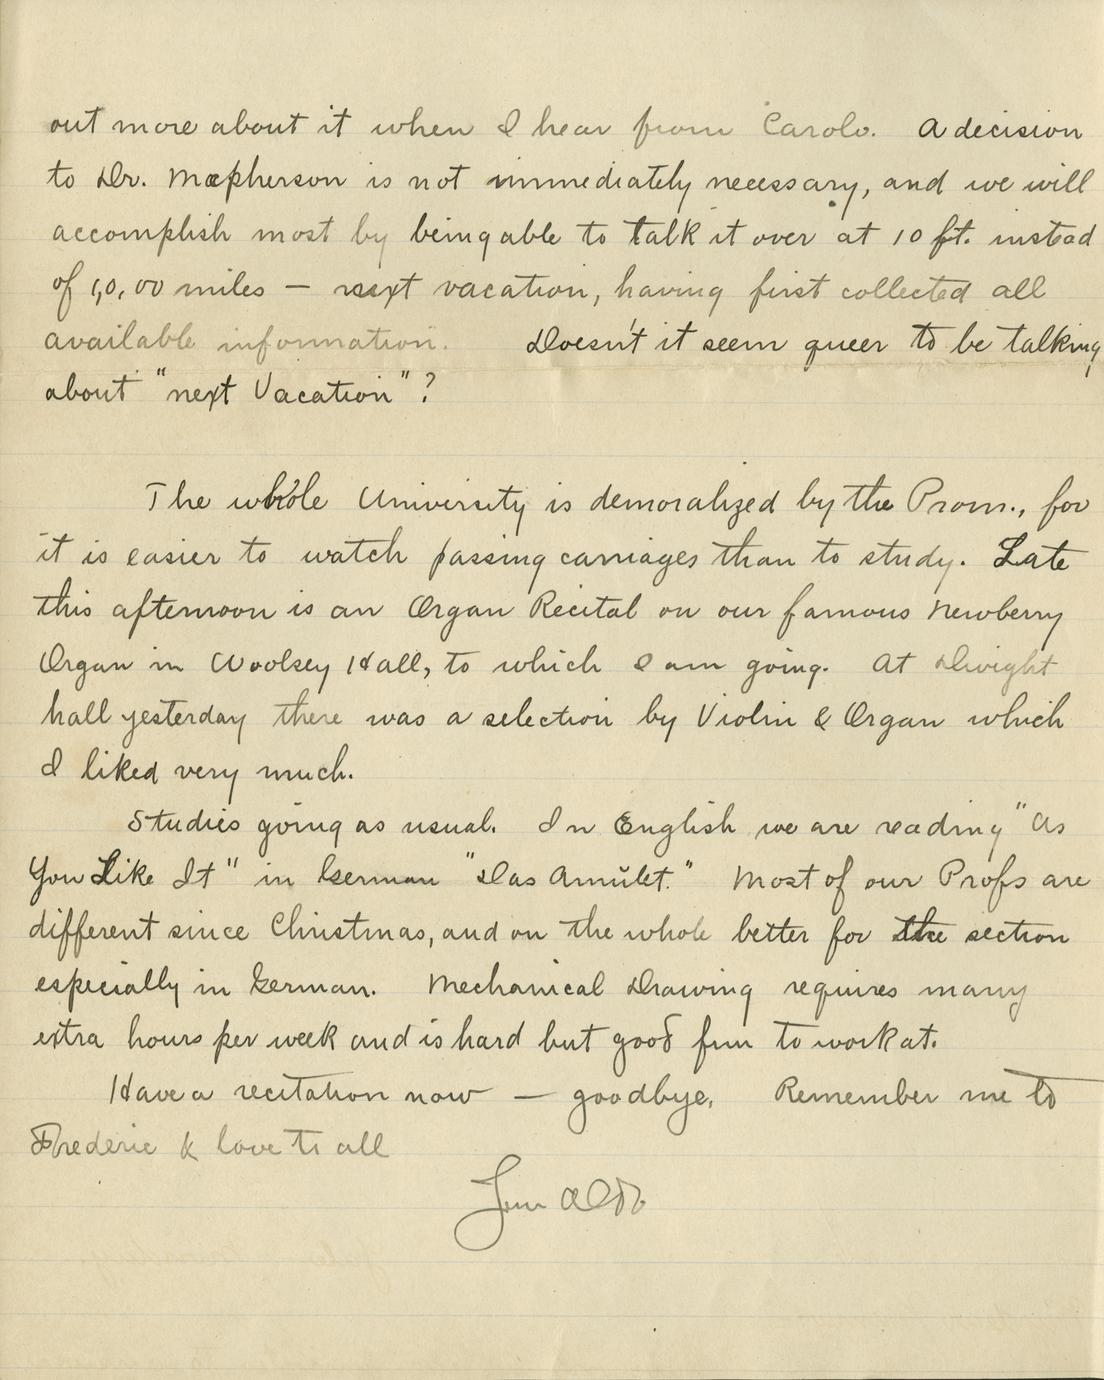 out more about it when I hear from Carolo. A decision
to Dr. Macpherson is not immediately necessary, and we will
accomplish most by being able to talk it over at 10 ft. instead
of 1,0,00 miles — next vacation, having first collected all
available information. Doesn't it seem queer to be talking
about "next Vacation"?
The whole University is demoralized by the Prom., for
it is easier to watch passing carriages than to study. Late
this afternoon is an Organ Recital on our famous Newberry
Organ in Woolsey Hall, to which I am going. At Dwight
hall yesterday there was a selection by Violin & Organ which
I liked very much.
Studies going as usual. In English we are reading "As
You Like It" in German "Das Amulet." Most of our Profs are
different since Christmas, and on the whole better for the section
especially in German. Mechanical Drawing requires many
extra hours per week and is hard but good fun to work at.
Have a recitation now — goodbye, Remember me to
Frederic & love to all